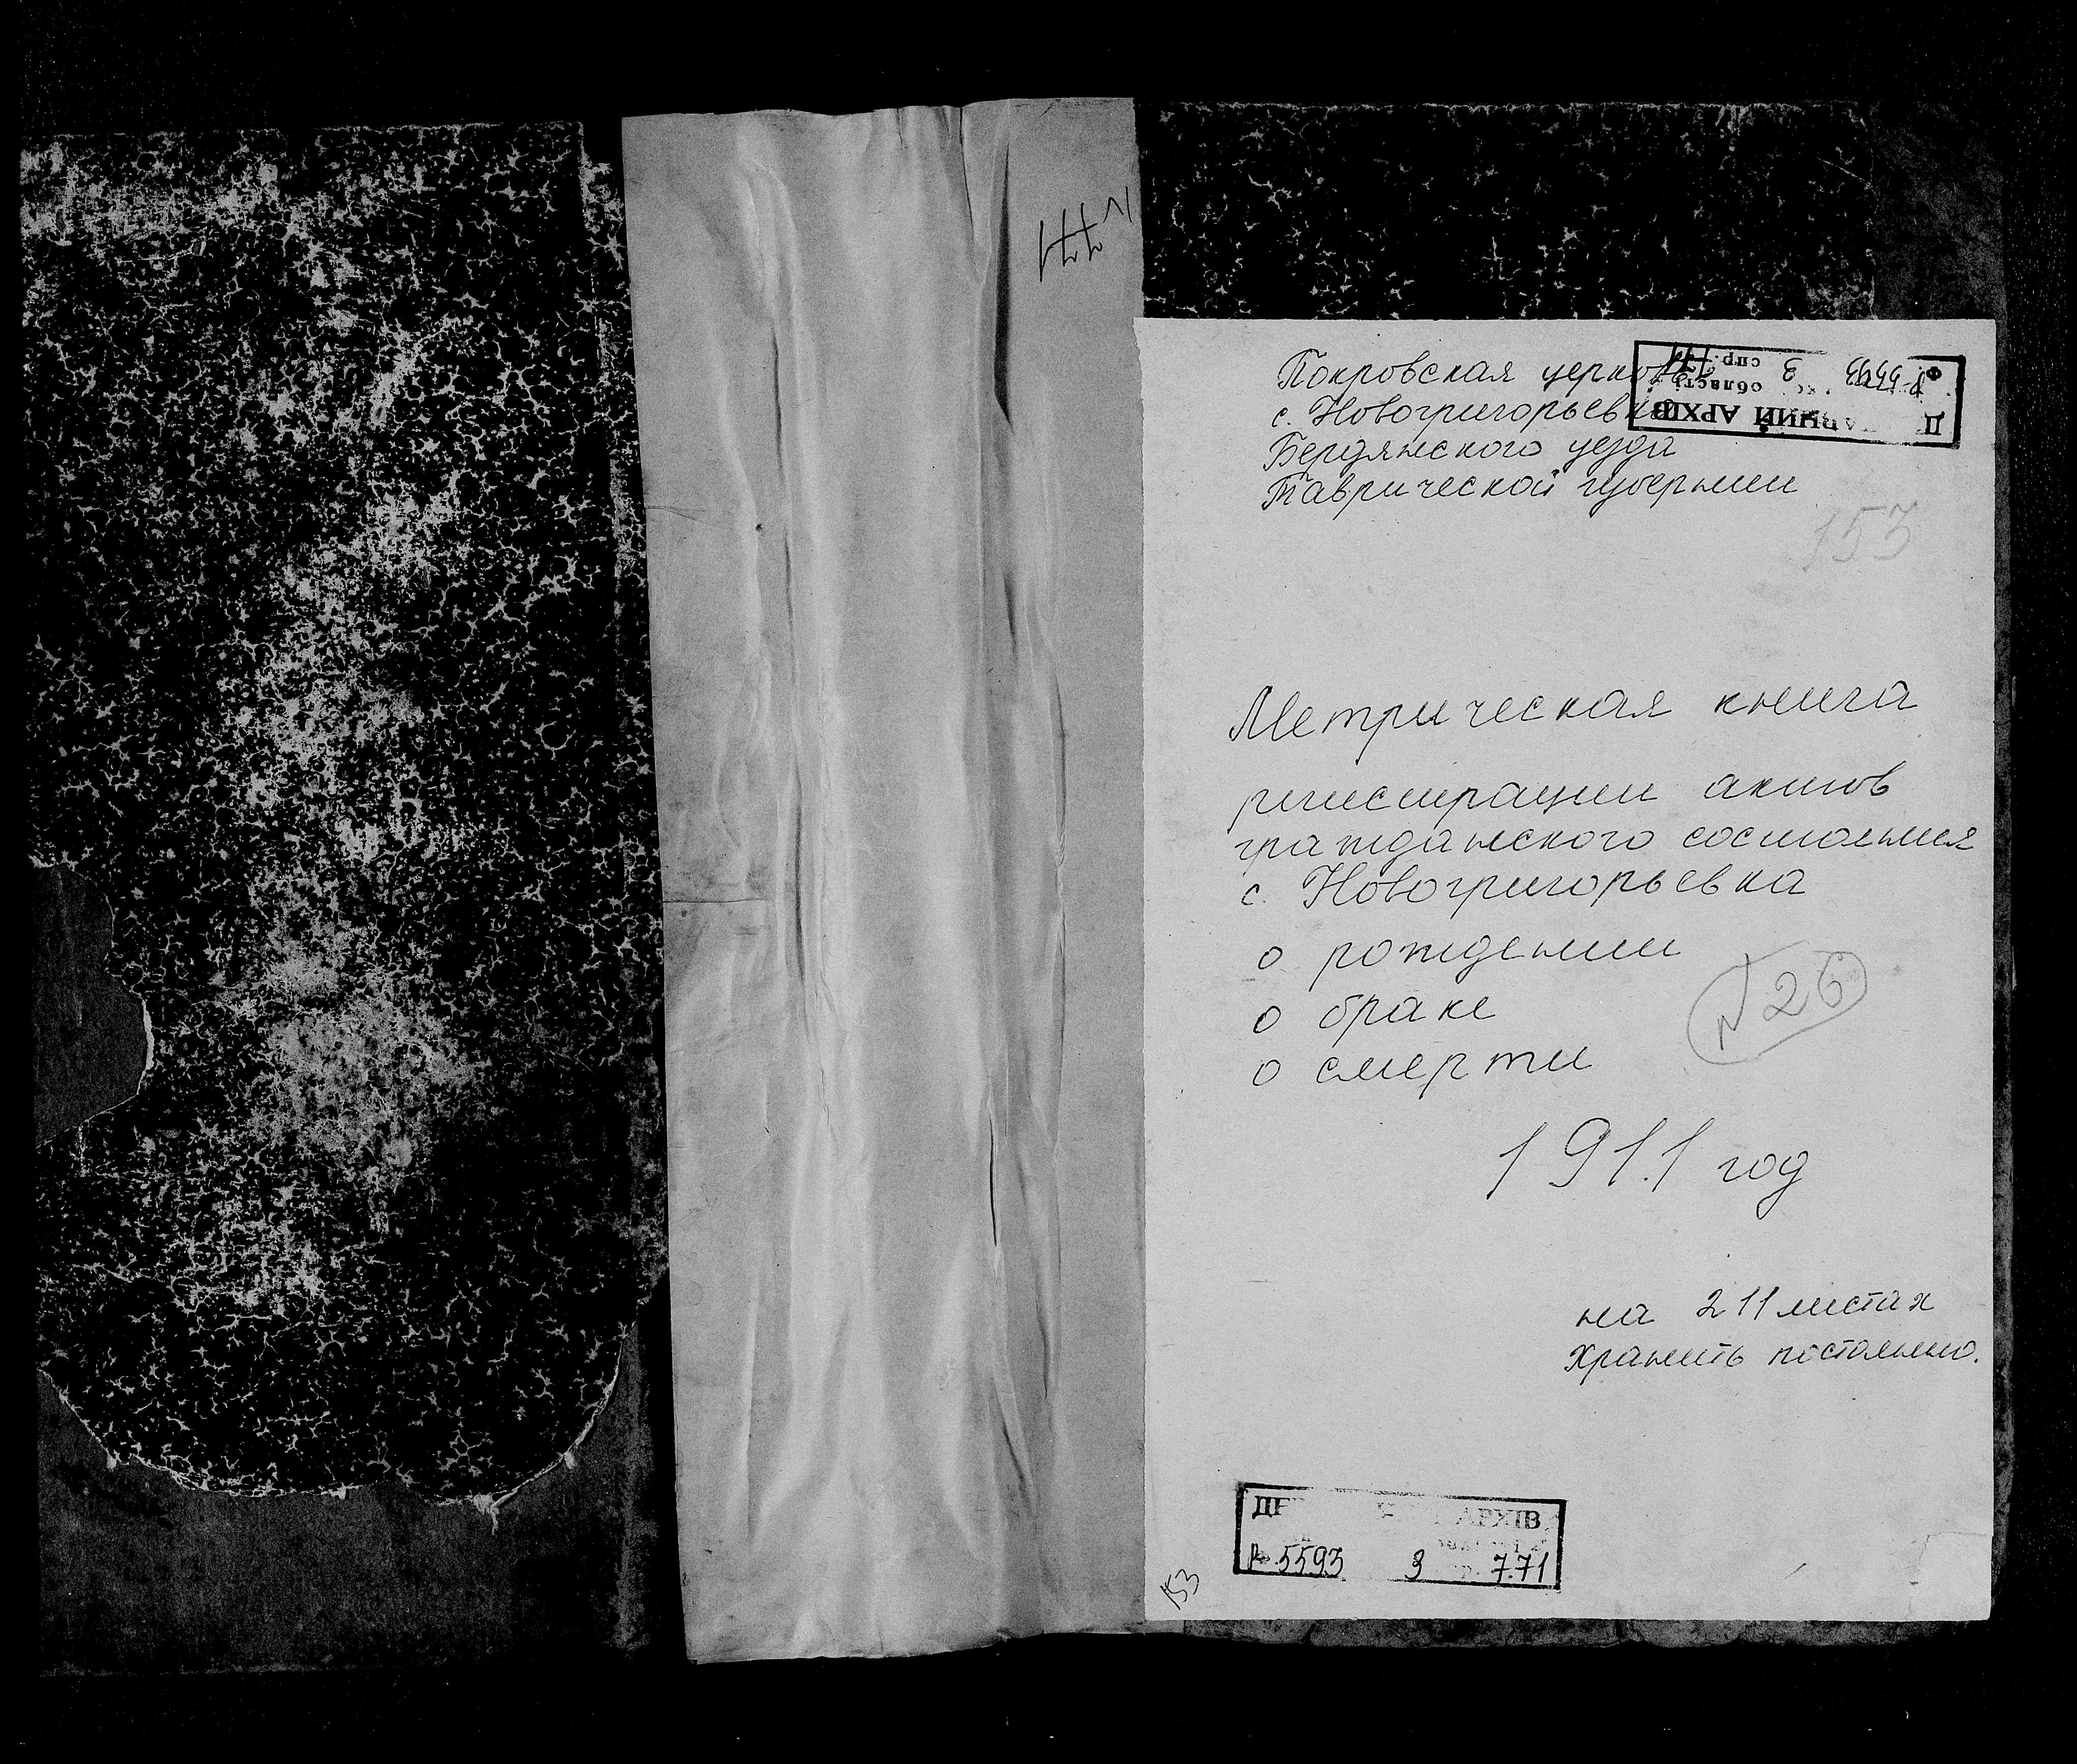 Покровская церковь
с. Новогригорьевка
Бердянского уезда
Таврической губернии
153
Метрическая книга
регистрации актов
гражданского состояния
с. Новогригорьевка
о рождении
о браке
о смерти
N 26
1911 год
на 211 листах
хранить постоянно.
АРХІВ
Р-5593 3 771
153
Р-5593 3 спр. 771
області
АРХІВ